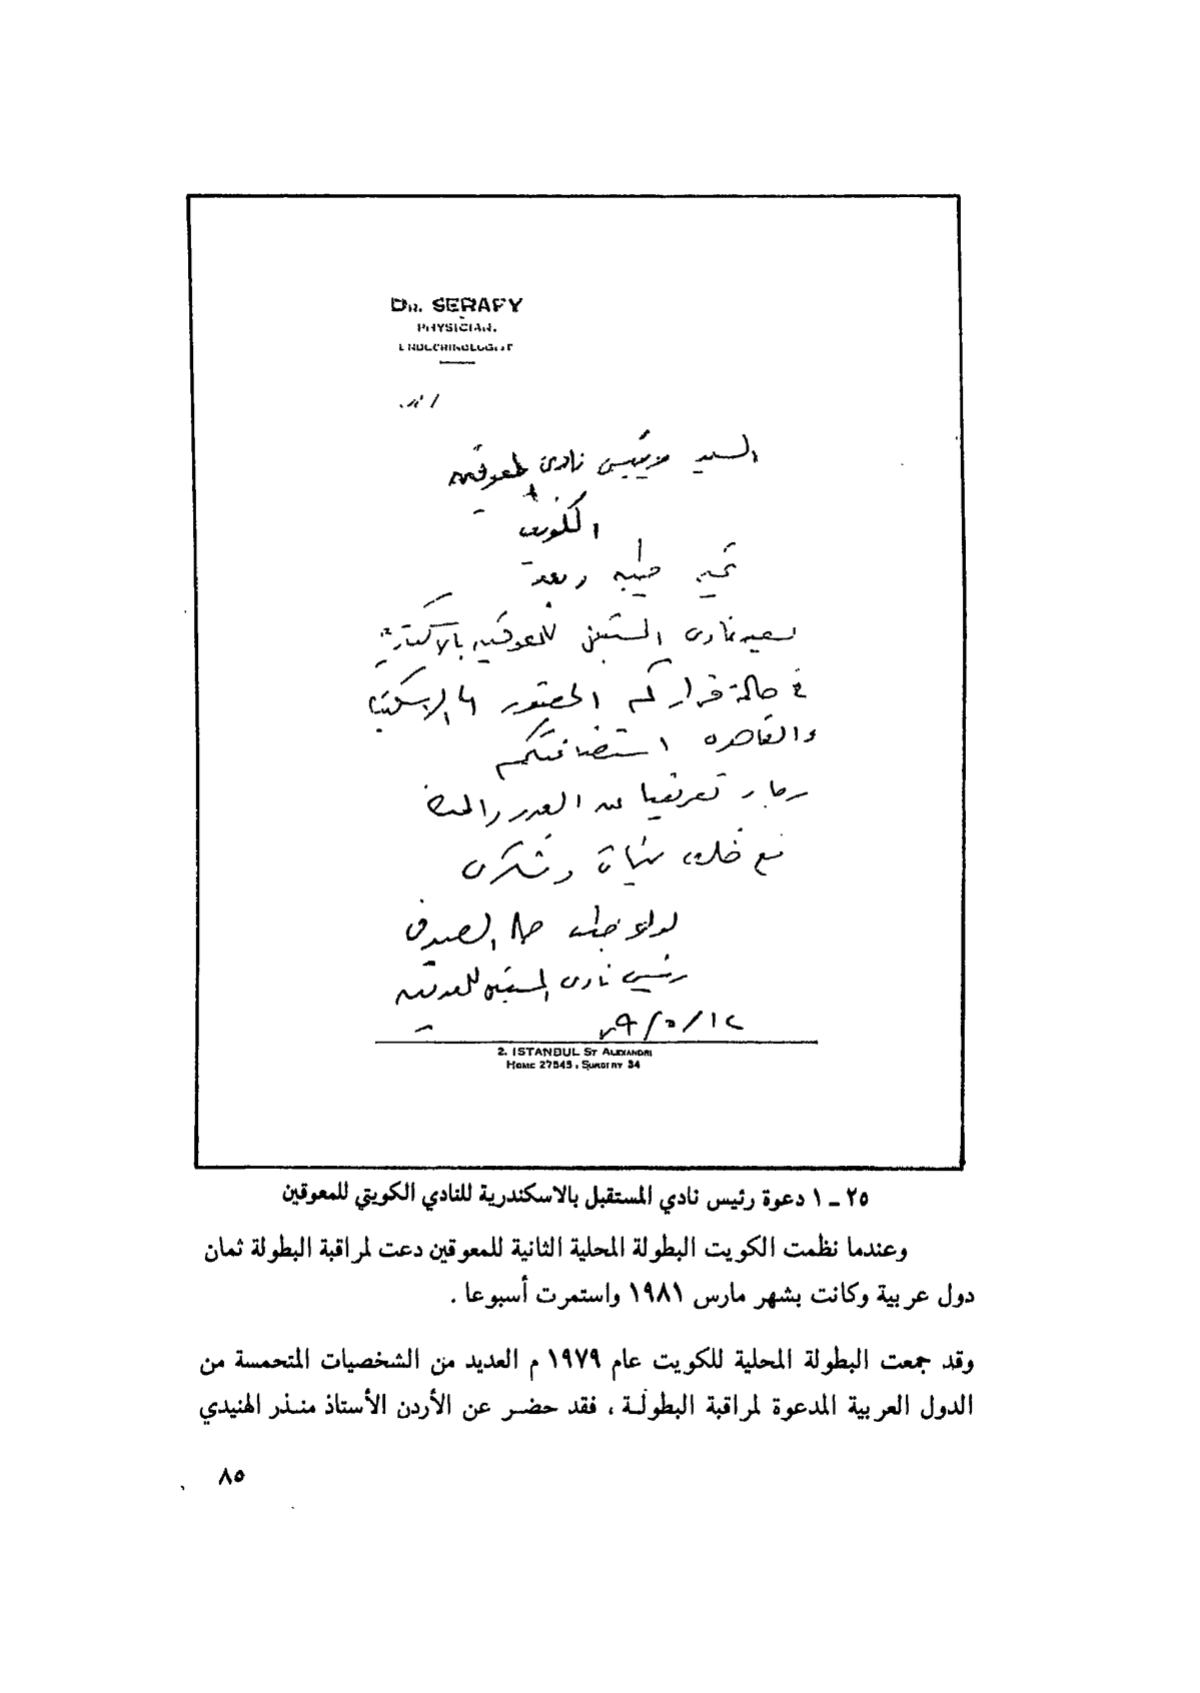 DR. SERAFY
PHYSICIAN.
ENDOCRINOLOGIST
السيد رئيس نادى المعوقين
الكويت
تحية طيبة وبعد
يسعد نادى المستقبل للمعوقين بالاسكندرية
فى حالة قراركم الحضور الى الاسكندرية
والقاهرة استضافتكم
رجاء تعريفنا عن العدد
مع خالص وشكرى
لواء طبيب
رئيس نادى المستقبل للمعوقين
2. ISTANBUL ST ALEXANDRI
HOME 27545, SURGERY 34
٢٥ ـ ١ دعوة رئيس نادي المستقبل بالاسكندرية للنادي الكويتي للمعوقين
وعندما نظمت الكويت البطولة المحلية الثانية للمعوقين دعت لمراقبة البطولة ثمان
دول عربية وكانت بشهر مارس ١٩٨١ واستمرت أسبوعا .
وقد جمعت البطولة المحلية للكويت عام ١٩٧٩ م العديد من الشخصيات المتحمسة من
الدول العربية المدعوة لمراقبة البطولـة ، فقد حضـر عن الأردن الأستاذ منـذر الهنيدي
٨٥